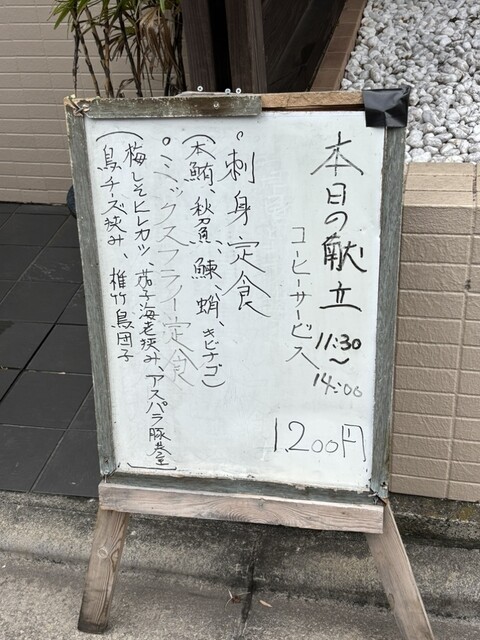 本日の献立
11:30
〜
14:00
コーヒーサービス
1,200円
○刺身定食
(本鮪、秋刀魚、鰊、蛸、キビナゴ)
○ミックスフライ定食
(梅しそヒレカツ、茄子海老挟み、アスパラ豚巻
鳥チーズ挟み、椎竹鳥団子